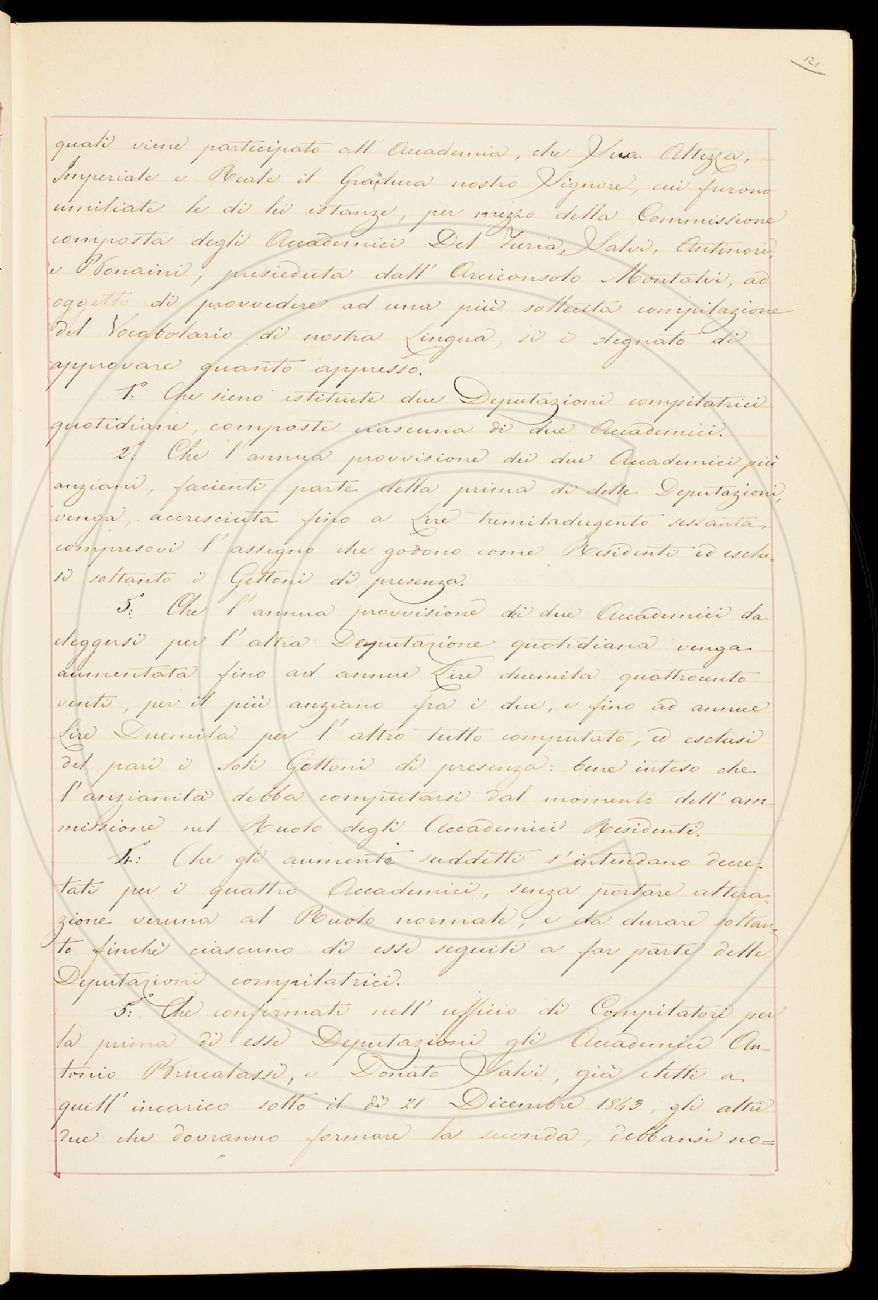 121
quali viene partecipato all'Accademia, che Sua Altezza,
Imperiale e Reale il Granduca nostro Signore, cui furono
umiliate le di lei istanze, per mezzo della Commissione
composta degli Accademici Del Furia, Salvi, Antinori,
e Bonaini, presieduta dall'Arciconsolo Montalvi, ad
oggetto di provvedere ad una più sollecita compilazione
del Vocabolario di nostra Lingua, si è degnato di
approvare quanto appresso.
1.° Che sieno istituite due Deputazioni compilatrici
quotidiane, composte ciascuna di due Accademici.
2.° Che l'annua provvisione dei due Accademici più
anziani, facienti parte della prima di dette Deputazioni,
venga accresciuta fino a Lire tremiladugento sessanta,
compresovi l'assegno che godono come Residenti ed esclu-
si soltanto i Gettoni di presenza.
3.° Che l'annua provvisione dei due Accademici da
eleggersi per l'altra Deputazione quotidiana venga
aumentata fino ad annue Lire duemila quattrocento
venti, per il più anziano fra i due, e fino ad annue
Lire Duemila per l'altro tutto computato, ed esclusi
del pari i soli Gettoni di presenza: bene inteso che
l'anzianità debba computarsi dal momento dell'am-
missione nel Ruolo degli Accademici Residenti.
4.° Che gli aumenti suddetti s'intendano decre-
tati per i quattro Accademici, senza portare altera-
zione veruna al Ruolo normale, e da durare soltan-
to finchè ciascuno di essi seguiti a far parte delle
Deputazioni compilatrici.
5.° Che confermati nell'ufficio di Compilatori per
la prima di esse Deputazioni gli Accademici An-
tonio Brucalassi, e Donato Salvi, già eletti a
quell'incarico sotto il dì 21 Dicembre 1843, gli altri
due che dovranno formare la seconda, debbansi no=